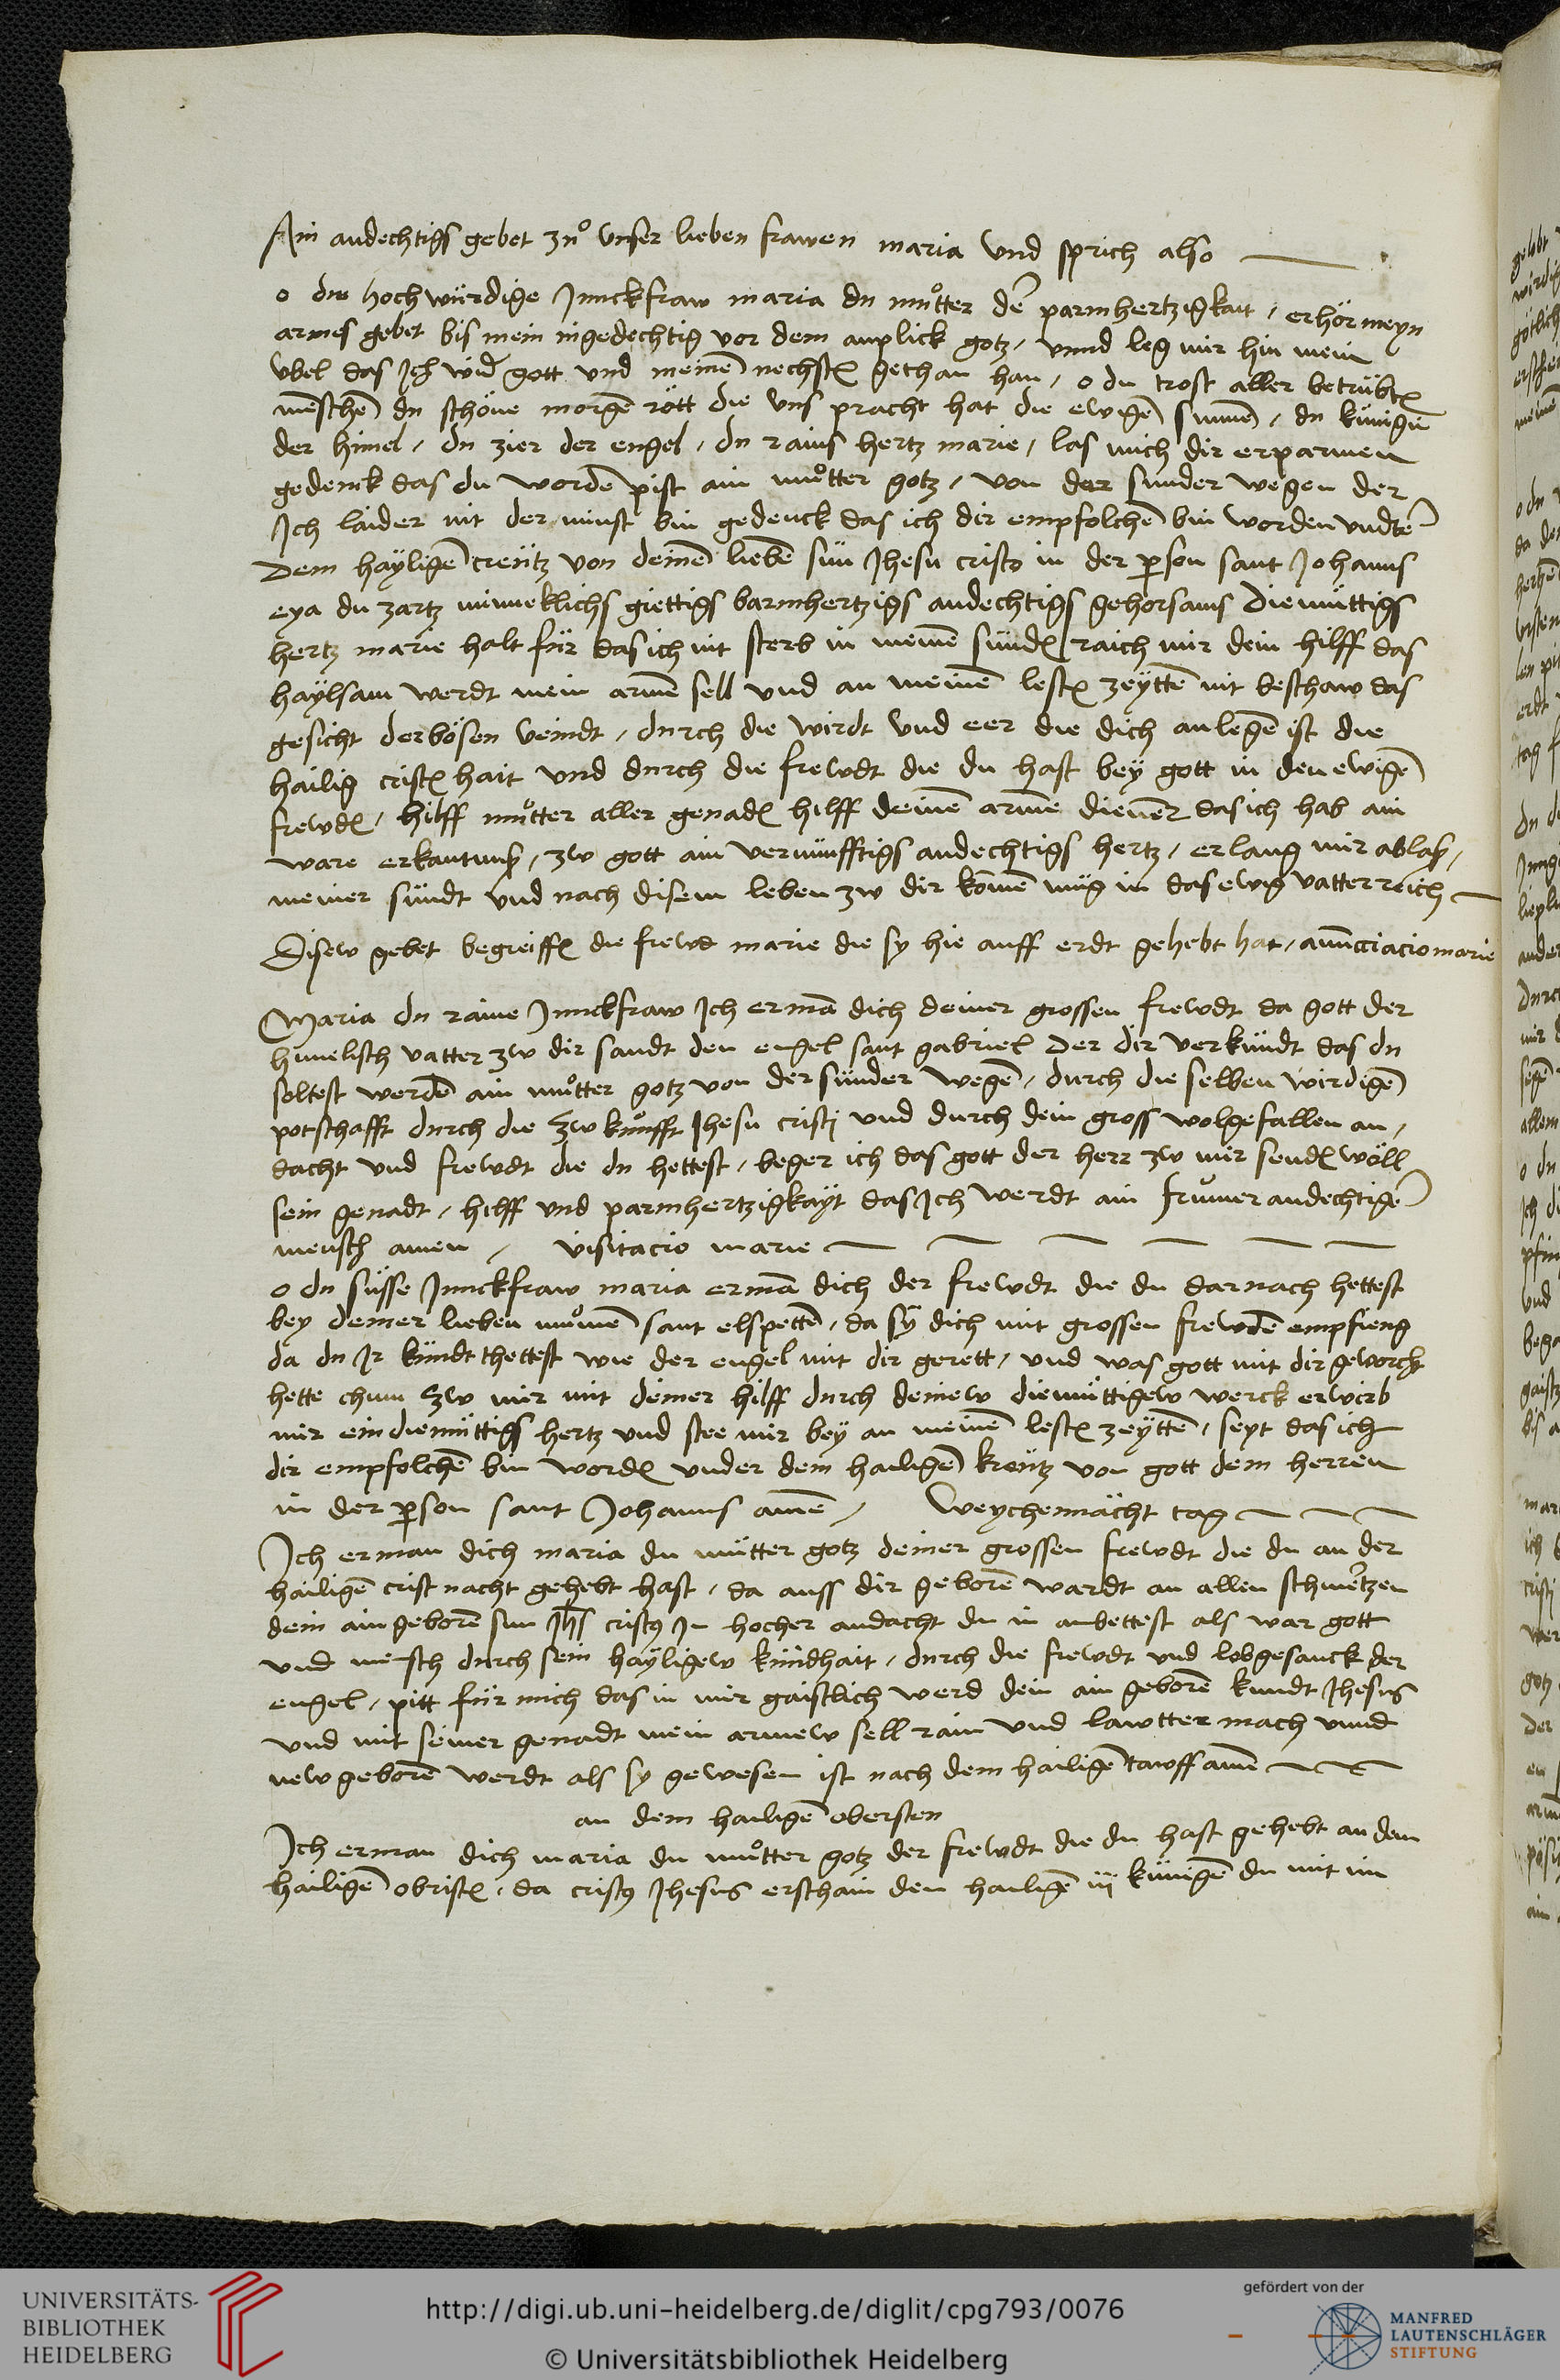 Ain andechtigs gebet zuͦ vnser lieben frawen maria vnd sprich also
o du hochwürdige Junckfraw maria du muͦtter der parmhertzigkait / erhör meyn
armes gebet bis mein ingedechtig vor dem anplick gotz / vnnd leg mir hin mein
vbel das Ich wider gott vnd meinen̄ nechsten gethan han / o du trost aller betrübten
mēschen̄ du schöne morgen̄ rött die vns pracht hat die ewigen̄ sunnen̄ / du künigin
der himel / du zier der engel / du rains hertz marie / las mich dir erparmen
gedenck das du worden̄ pist ain muͦtter gotz / von der sunder wegen der
Ich laider nit der minst bin gedenck das ich dir empfolchen̄ bin worden vndter
dem hayligen̄ creütz von deinen̄ lieben̄ sun Jhesu cristo in der person sant Johanns
eya du zartz minneklichs giettigs barmhertzigs andechtigs gehorsams diemüttigs
hertz marie halt für das ich nit sterb in meinen̄ sünden raich mir dein hilff das
haylsam werdt mein armē sell vnd an meinen̄ lesten zeytten̄ nit beschaw das
gesicht der bösen veindt / durch die wirdt vnd eer die dich anlegen̄ ist die
hailig cristen hait vnd durch die frewdt die du hast bey gott in den ewigen̄
frewden / hilff muͦtter aller genaden hilff deinen̄ armē diener das ich hab ain
ware erkantnuß / zw gott ain vernünfftigs andechtigs hertz / erlang mir ablaß /
meiner sündt vnd nach disem leben zw dir komen̄ müg in das ewig vatterreich
Disew gebet begreiffen die frewd marie die sy hie auff erdt gehebt hat / annūcciacio marie
Maria du raine Junckfraw Ich erman dich deiner grossen frewdt da gott der
himelisch vatter zw dir sandt den engel sant gabriel der dir verkündt das du
soltest werden̄ ain muͦtter gotz von der sünder wegen̄ / durch die selben wirdigen̄
potschafft durch die zwkunfft Jhesu cristi vnd durch dein gross wolgefallen an /
dacht vnd frewdt die du hettest / beger ich das gott der herr zw mir senden wöll
sein genadt / hilff vnd parmhertzigkayt das Ich werdt ain frumer andechtiger
mensch amen / visitacio marie
o du süsse Junckfraw maria erman dich der frewdt die du darnach hettest
bey deiner lieben muͦmen̄ sant elspetten̄ / da sy dich mit grossen frewden̄ empfieng
da du Ir kündt thettest wie der engel mit dir gerett / vnd was gott mit dir geworcht
hette chum zw mir mit deiner hilff durch deinew diemüttigew werck erwirb
mir ein diemüttigs hertz vnd stee mir bey an meinen̄ lesten zeytten̄ / seyt das ich
dir empfolchen̄ bin worden vnder dem hailigen̄ kreütz von gott dem herren
in der person sant Johanns amen̄ / Weychennächt tag
Ich erman dich maria du mütter gotz deiner grossen frewdt die du an der
hailigen̄ crist nacht gehebt hast / da auss dir geboren̄ wardt an allen schmertzen
dein aingeboren̄ sun Jhs cristus In hocher andacht du in anbettest als war gott
vnd mensch durch sein hayligew kindhait / durch die frewdt vnd lobgesanck der
engel / pitt für mich das in mir gaistlich werd dein ain geboren̄ kindt Jhesus
vnd mit seiner genadt mein armew sell rain vnd lawtter mach vnnd
new geboren̄ werdt als sy gewesen ist nach dem hailigen̄ tawff amen̄
an dem hailigen̄ obersten
Ich erman dich maria du muͦtter gotz der frewdt die du hast gehebt an dem
hailigen̄ obristen / da cristus Jhesus erschain den hailigen̄ iij künigen̄ du mit im
UNIVERSITÄTS-
BIBLIOTHEK
HEIDELBERG
http://digi.ub.uni-heidelberg.de/diglit/cpg793/0076
© Universitätsbibliothek Heidelberg
gefördert von der
MANFRED
LAUTENSCHLÄGER
STIFTUNG